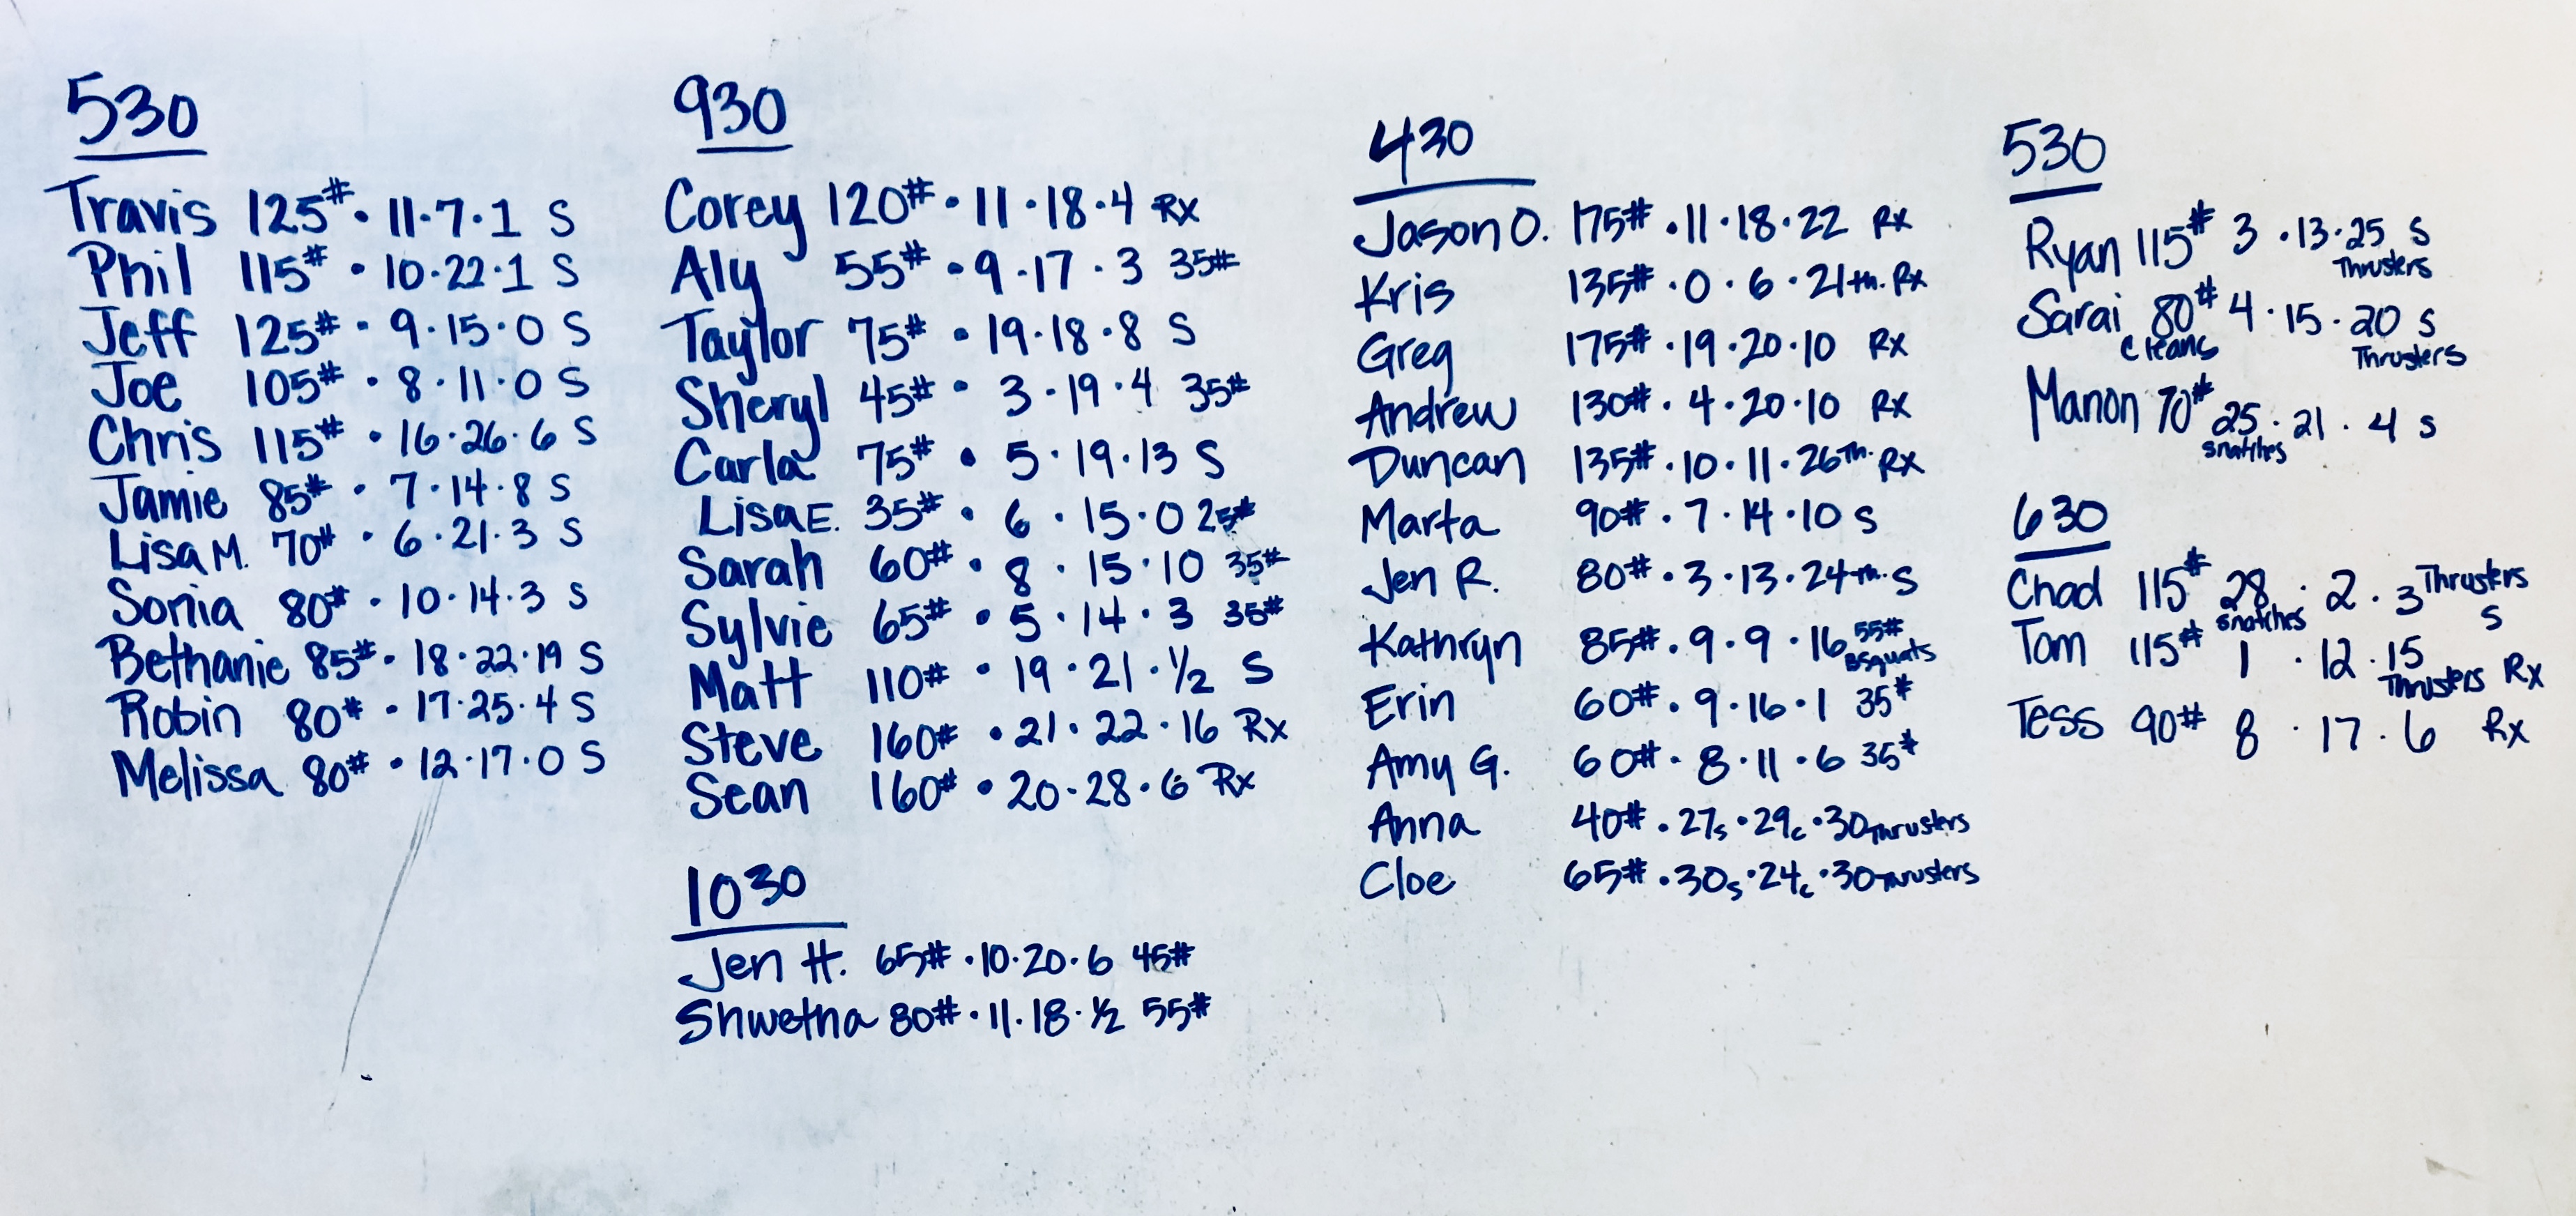 530
Travis 125# · 11 · 7 · 1 S
Phil 115# · 10 · 22 · 1 S
Jeff 125# · 9 · 15 · 0 S
Joe 105# · 8 · 11 · 0 S
Chris 115# · 16 · 26 · 6 S
Jamie 85# · 7 · 14 · 8 S
Lisa M. 70# · 6 · 21 · 3 S
Sonia 80# · 10 · 14 · 3 S
Bethanie 85# · 18 · 22 · 19 S
Robin 80# · 17 · 25 · 4 S
Melissa 80# · 12 · 17 · 0 S
930
Corey 120# · 11 · 18 · 4 Rx
Aly 55# · 9 · 17 · 3 35#
Taylor 75# · 19 · 18 · 8 S
Sheryl 45# · 3 · 19 · 4 35#
Carla 75# · 5 · 19 · 13 S
Lisa E. 35# · 6 · 15 · 0 25#
Sarah 60# · 8 · 15 · 10 35#
Sylvie 65# · 5 · 14 · 3 35#
Matt 110# · 19 · 21 · 1/2 S
Steve 160# · 21 · 22 · 16 Rx
Sean 160# · 20 · 28 · 6 Rx
1030
Jen H. 65# · 10 · 20 · 6 45#
Shwetha 80# · 11 · 18 · 1/2 55#
430
Jason O. 175# · 11 · 18 · 22 Rx
Kris 135# · 0 · 6 · 21 th. Rx
Greg 175# · 19 · 20 · 10 Rx
Andrew 130# · 4 · 20 · 10 Rx
Duncan 135# · 10 · 11 · 26 Th. Rx
Marta 90# · 7 · 14 · 10 S
Jen R. 80# · 3 · 13 · 24 th. S
Kathryn 85# · 9 · 9 · 16 55# BSquats
Erin 60# · 9 · 16 · 1 35#
Amy G. 60# · 8 · 11 · 6 35#
Anna 40# · 27s · 29c · 30 Thrusters
Cloe 65# · 30s · 24c · 30 Thrusters
530
Ryan 115# 3 · 13 · 25 S
Thrusters
Sarai 80# 4 · 15 · 20 S
Cleans Thrusters
Manon 70# 25 · 21 · 4 S
snatches
630
Chad 115# 28 · 2 · 3 Thrusters
snatches S
Tom 115# 1 · 12 · 15
Thrusters Rx
Tess 90# 8 · 17 · 6 Rx